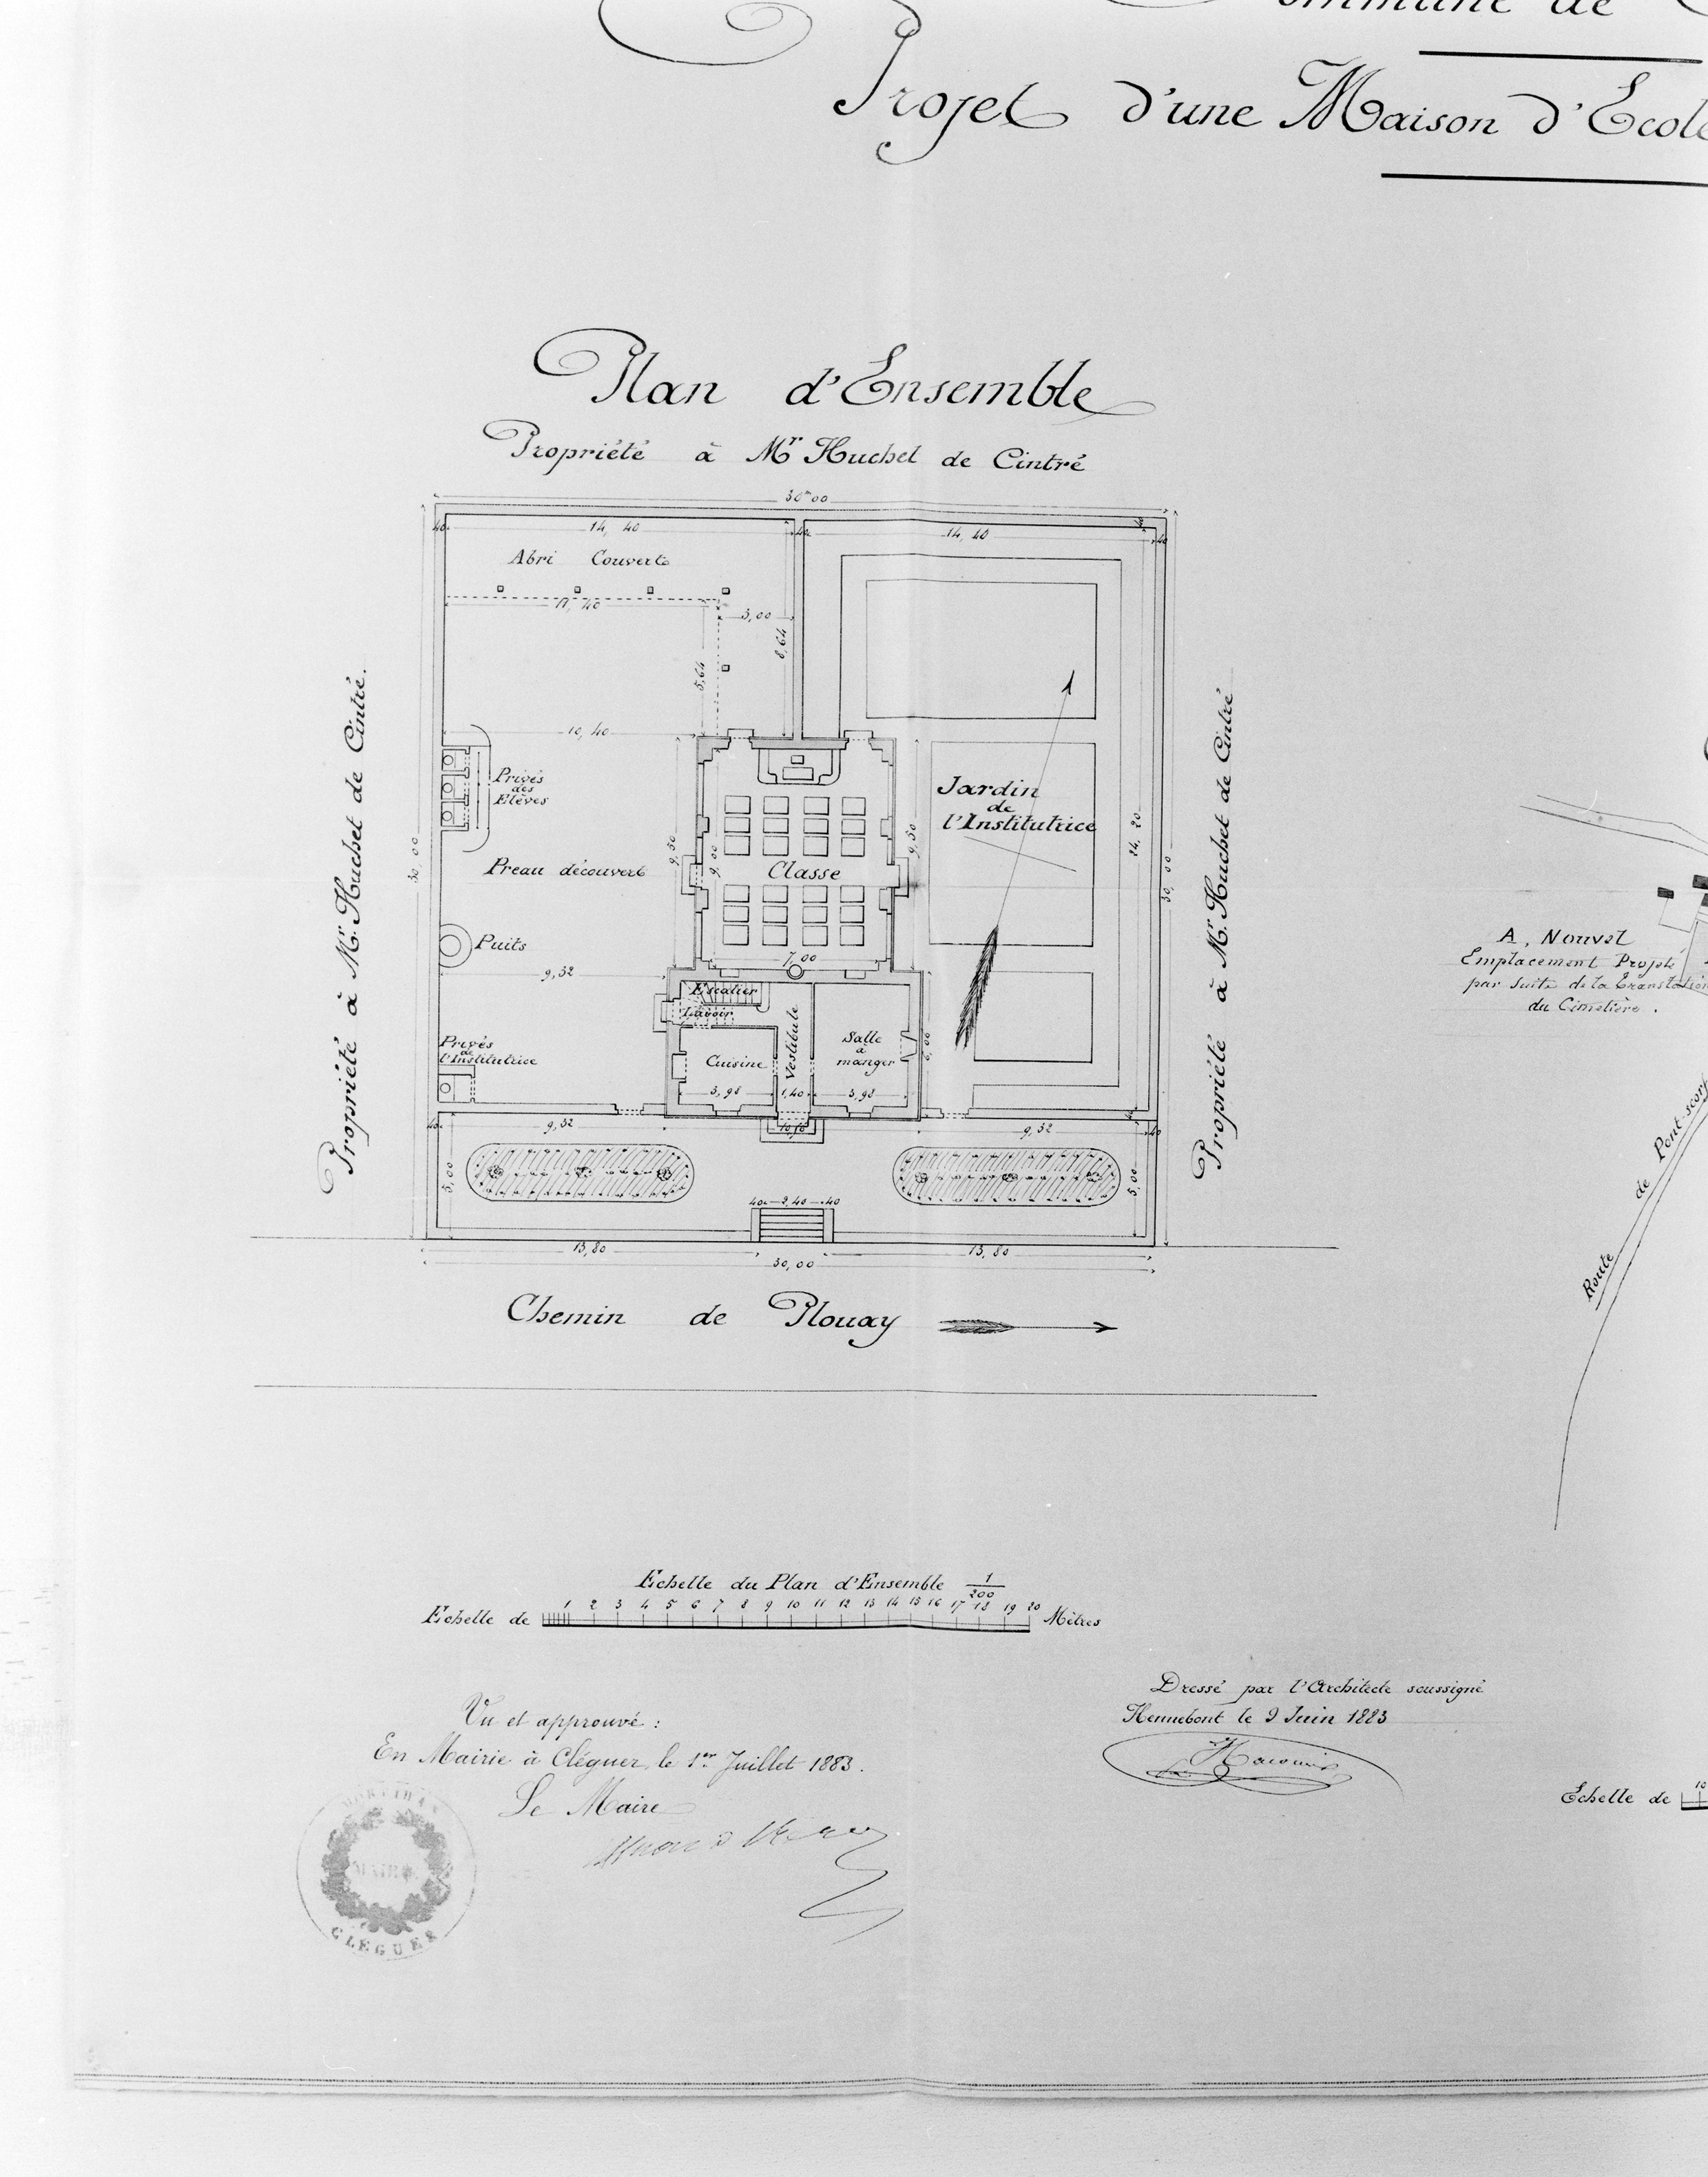 ommune de
Projet d'une Maison d'Ecole
Plan d'Ensemble
Propriété à Mr Huchet de Cintré
30m00
40 14, 40 40 14, 40 40
Abri Couvert
11, 40
3,00
8,64
5,64
10, 40
Privés
des
Elèves
Jardin
de
l'Institutrice
Classe
Preau découvert
Puits
9,50
9,00
9,50
24, 20
30, 00
30, 00
7,00
9,32
Escalier
Lavoir
Vestibule
Salle
à
manger
Cuisine
6,00
Privés
de
l'Institutrice
3,98 1,40 3,98
40 9,32 9,32 40
5,00
5,00
40 2,40 40
13,80 13,80
30,00
Propriété à Mr. Huchet de Cintré.
Propriété à Mr Huchet de Cintré
Chemin de Plouay
A, Nouvel
Emplacement Projeté
par suite de la Translation
du Cimetière.
Route de Pont-scorff
Echelle du Plan d'Ensemble 1/200
Echelle de 1 2 3 4 5 6 7 8 9 10 11 12 13 14 15 16 17 18 19 20 Mètres
Vu et approuvé :
En Mairie à Cléguer, le 1er Juillet 1883.
Le Maire
MORBIHAN
MAIRIE
CLÉGUER
Dressé par l'Architecte soussigné
Hennebont le 9 Juin 1883
Echelle de 10